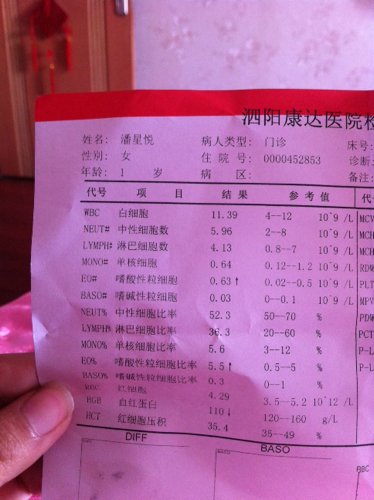 泗阳康达医院检
姓名: 潘星悦 病人类型: 门诊 床号:
性别: 女 住 院 号: 0000452853 诊断:
年龄: 1 岁 病 区: 备注:
代号 项 目 结 果 参 考 值
WBC 白细胞 11.39 4--12 10^9 /L MCV
NEUT# 中性细胞数 5.96 2--8 10^9 /L MCH
LYMPH# 淋巴细胞数 4.13 0.8--7 10^9 /L MCH
MONO# 单核细胞 0.64 0.12--1.2 10^9 /L RDW
EO# 嗜酸性粒细胞 0.63↑ 0.02--0.5 10^9 /L PLT
BASO# 嗜碱性粒细胞 0.03 0--0.1 10^9 /L MPV
NEUT% 中性细胞比率 52.3 50--70 % PDW
LYMPH% 淋巴细胞比率 36.3 20--60 % PCT
MONO% 单核细胞比率 5.6 3--12 % P-L
EO% 嗜酸性粒细胞比率 5.5↑ 0.5--5 % P-L
BASO% 嗜碱性粒细胞比率 0.3 0--1 %
RBC 红细胞 4.29 3.5--5.2 10^12 /L
HGB 血红蛋白 110↓ 120--160 g/L
HCT 红细胞压积 35.4 35--49 %
DIFF BASO